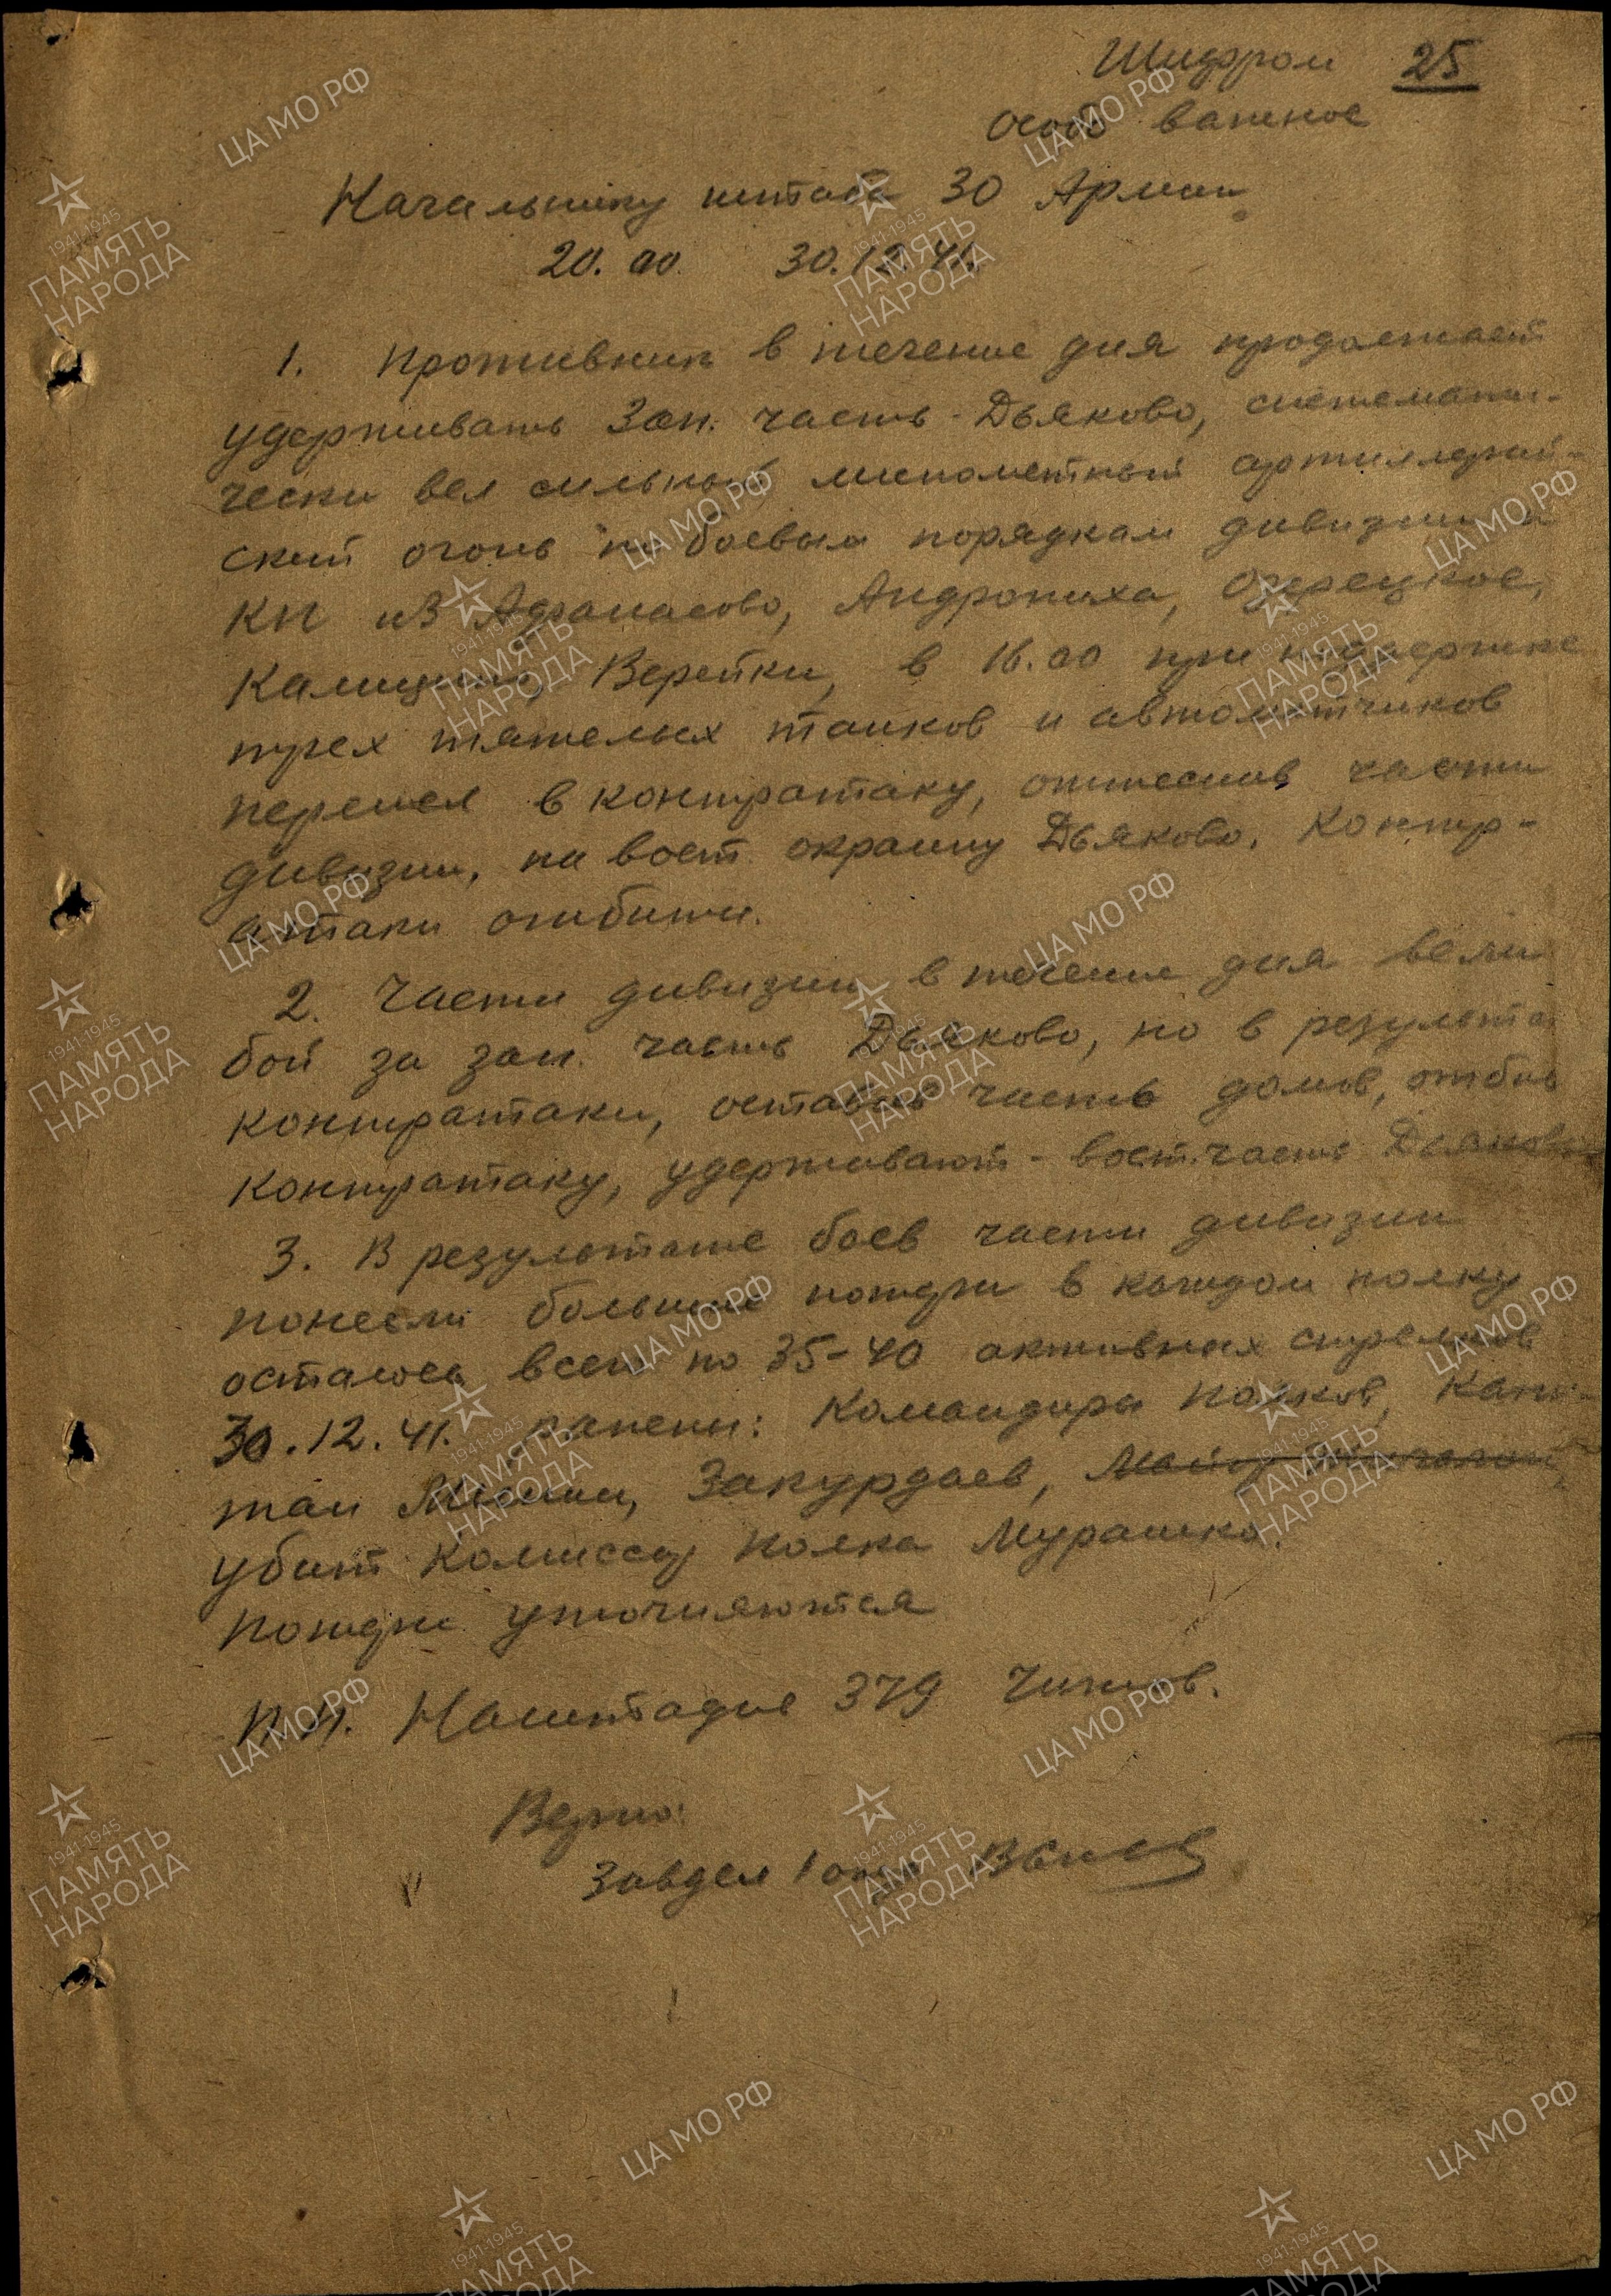 Шифром 25
Особо важное
Начальнику штаба 30 Армии
20.00 30.12.41.
1. Противник в течение дня продолжает
удерживать Зап. часть - Дьяково, системати-
чески вел сильный минометный артиллерий-
ский огонь по боевым порядкам дивизии и
КП из Афанасово, Андрониха, Озерецкое,
Калицино, Верейки, в 16.00 при поддержке
трех тяжелых танков и автоматчиков
перешел в контратаку, оттеснив части
дивизии, на вост. окраину Дьяково. Контр-
атаки отбиты.
2. Части дивизии в течение дня вели
бой за зап. часть Дьяково, но в результа
контратаки, оставив часть домов, отбив
контратаку, удерживают - вост. часть Дьяково
3. В результате боев части дивизии
понесли большие потери в каждом полку
осталось всего по 35-40 активных стрелков
30.12.41. ранены: Командиры полков, Капи-
тан Закурдаев, Майор
убит комиссар полка Мурашко.
Потери уточняются
п.п. Наштадив 379 Чижов.
Верно:
Завдел 1 отд.
ЦА МО РФ
1941-1945
ПАМЯТЬ
НАРОДА